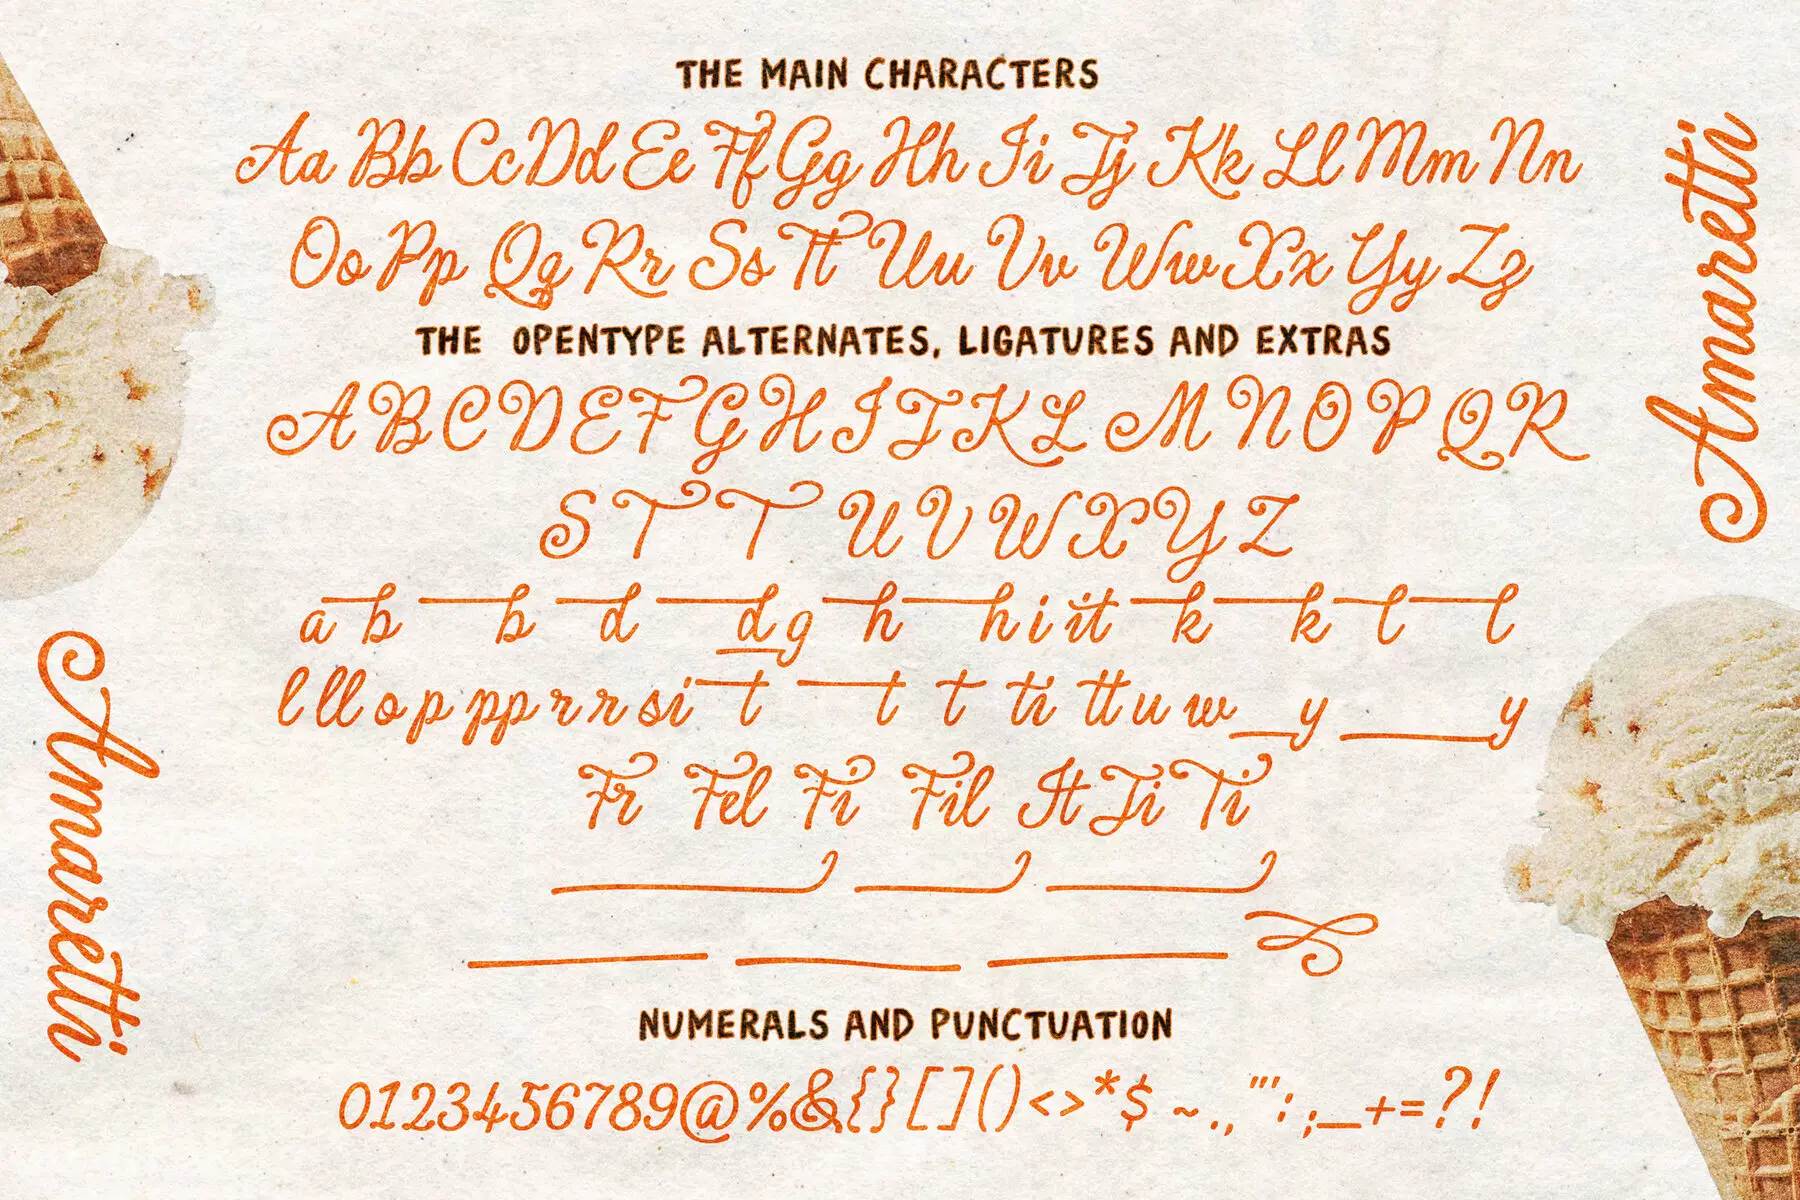 THE MAIN CHARACTERS
Aa Bb Cc Dd Ee Ff Gg Hh Ii Jj Kk Ll Mm Nn
Oo Pp Qq Rr Ss Tt Uu Vv Ww Xx Yy Zz
THE OPENTYPE ALTERNATES, LIGATURES AND EXTRAS
A B C D E F G H I J K L M N O P Q R
S T T U V W X Y Z
a b b d d g h h i it k k l l
l ll o p pp r r s i t t t ti tt u w y y
Fr Fel Fi Fil It Ji Ti
NUMERALS AND PUNCTUATION
0123456789@%&{}[]()<>*$~.,"':;_+=?!
Amaretti
Amaretti